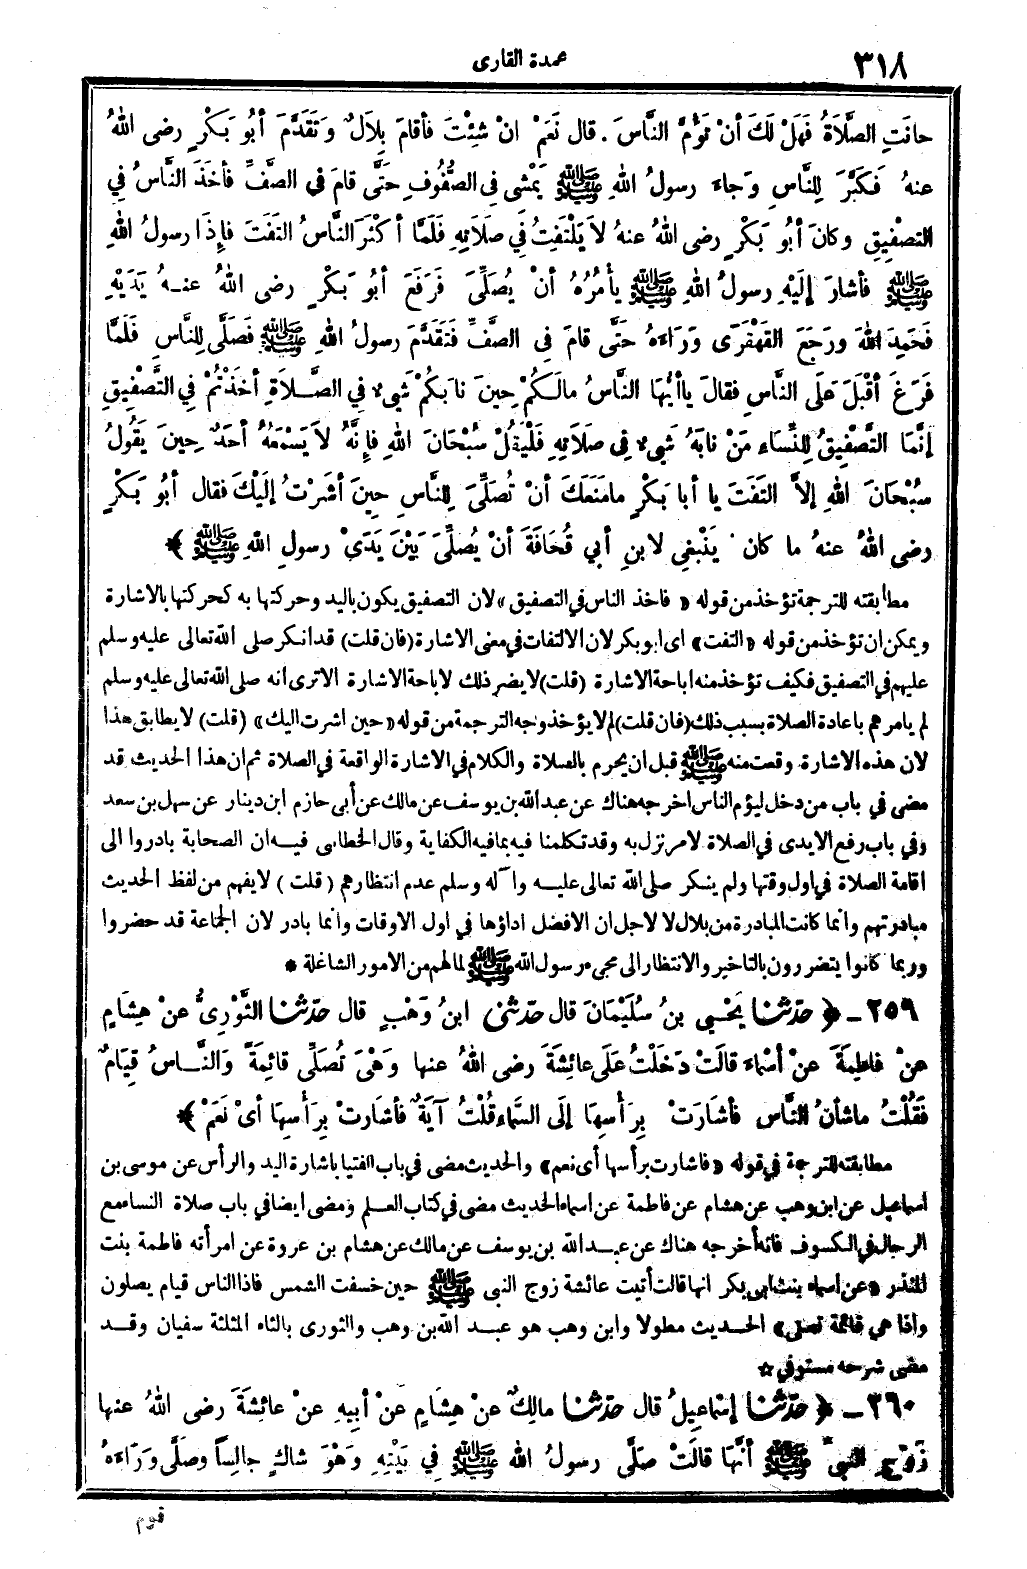 ٣١٨
عمدة القارى
حانَتِ الصَّلَاةُ فَهَلْ لَكَ أنْ تَؤُمَّ النَّاسَ . قال نَعَمْ انْ شِئْتَ فأقامَ بِلَالٌ وَتَقَدَّمَ أبُو بَكْرٍ رضى اللهُ
عنهُ فَكَبَّرَ لِلنَّاسِ وَجاءَ رسولُ اللهِ ﷺ يَمْشى فِى الصُّفُوفِ حَتَّى قامَ فى الصَّفِّ فأخَذَ النَّاسُ فِي
التصْفِيقِ وكانَ أبُو بَكْرٍ رضى اللهُ عنهُ لاَ يَلْتَفِتُ فِي صَلاَتِهِ فَلَمَّا أكْثَرَ النَّاسُ التَفَتَ فإِذَا رسولُ اللهِ
ﷺ فأشارَ إلَيْهِ رسولُ اللهِ ﷺ يأْمُرُهُ أنْ يُصَلِّىَ فَرَفَعَ أبُو بَكْرٍ رضى اللهُ عنهُ يَدَيْهِ
فَحَمِدَ اللهَ ورَجَعَ القَهْقَرَى وَرَاءَهُ حَتَّى قامَ فِى الصَّفِّ فَتَقَدَّمَ رسولُ اللهِ ﷺ فَصَلَّى لِلنَّاسِ فَلَمَّا
فَرَغَ أقْبَلَ عَلَى النَّاسِ فقالَ ياأيُّها النَّاسُ مالَكُمْ حِينَ نابَكُمْ شَىْءٌ فِي الصَّلاَةِ أخَذْتُمْ فِي التَّصْفِيقِ
إنَّمَا التَّصْفِيقُ لِلنِّسَاءِ مَنْ نابَهُ شَىْءٌ فِى صَلاَتِهِ فَلْيَقُلْ سُبْحَانَ اللهِ فإنَّهُ لاَ يَسْمَعُهُ أحَدٌ حِينَ يَقُولُ
سُبْحَانَ اللهِ إلاَّ التَفَتَ يا أبا بَكْرٍ مامَنَعَكَ أنْ تُصَلِّىَ لِلنَّاسِ حِينَ أشَرْتُ إلَيْكَ فقال أبُو بَكْرٍ
رضى اللهُ عنهُ ما كان يَنْبَغِي لابنِ أبي قُحَافَةَ أنْ يُصَلِّىَ بَيْنَ يَدَىْ رسولِ اللهِ ﷺ ﴾
مطابقته للترجمة تؤخذ من قوله « فاخذ الناس فى التصفيق » لان التصفيق يكون باليد وحركتها به كحركتها بالاشارة
ويمكن ان تؤخذ من قوله «التفت» اى ابو بكر لان الالتفات في معنى الاشارة (فان قلت) قد انكر صلى الله تعالى عليه وسلم
عليهم في التصفيق فكيف تؤخذ منه اباحة الاشارة (قلت) لا يضر ذلك لاباحة الاشارة الاترى انه صلى الله تعالى عليه وسلم
لم يامرهم باعادة الصلاة بسبب ذلك (فان قلت) لم لا يؤخذ وجه الترجمة من قوله «حين اشرت اليك» (قلت) لا يطابق هذا
لان هذه الاشارة وقعت منه ﷺ قبل ان يحرم بالصلاة والكلام في الاشارة الواقعة في الصلاة ثم ان هذا الحديث قد
مضى في باب من دخل ليؤم الناس اخرجه هناك عن عبد الله بن يوسف عن مالك عن أبى حازم ابن دينار عن سهل بن سعد
وفي باب رفع الايدى في الصلاة لامر نزل به وقد تكلمنا فيه بما فيه الكفاية وقال الخطابى فيه ان الصحابة بادروا الى
اقامة الصلاة في اول وقتها ولم ينكر صلى الله تعالى عليه وآله وسلم عدم انتظارهم ( قلت ) لا يفهم من لفظ الحديث
مبادرتهم وانما كانت المبادرة من بلال لا لاجل ان الافضل اداؤها في اول الاوقات وانما بادر لان الجماعة قد حضروا
وربما كانوا يتضررون بالتاخير والانتظار الى مجىء رسول الله ﷺ لما لهم من الامور الشاغلة *
٢٥٩ – ﴿ حدّثنا يَحْيى بنُ سُلَيْمَانَ قال حدّثنى ابنُ وَهْبٍ قال حدّثنا الثَّوْرِيُّ عنْ هِشَامٍ
عنْ فاطِمَةَ عنْ أسْماءَ قالَتْ دَخَلْتُ عَلَى عائِشَةَ رضى اللهُ عنها وَهْىَ تُصَلِّي قائِمَةً وَالنَّاسُ قِيَامٌ
فَقُلْتُ ماشأنُ النَّاسِ فأشَارَتْ بِرَأسِهَا إلَى السَّماءِ قُلْتُ آيَةٌ فأشَارَتْ بِرَأسِهَا أىْ نَعَمْ ﴾
مطابقته للترجمة في قوله «فاشارت برأسها أى نعم» والحديث مضى في باب الفتيا باشارة اليد والرأس عن موسى بن
اسماعيل عن ابن وهب عن هشام عن فاطمة عن اسماء الحديث مضى في كتاب العلم ومضى ايضا في باب صلاة النساء مع
الرجال في الكسوف فانه أخرجه هناك عن عبد الله بن يوسف عن مالك عن هشام بن عروة عن امرأته فاطمة بنت
المنذر «عن اسماء بنت ابى بكر انها قالت أتيت عائشة زوج النبى ﷺ حين خسفت الشمس فاذا الناس قيام يصلون
واذا هي قائمة تصلى» الحديث مطولا وابن وهب هو عبد الله بن وهب والثورى بالثاء المثلثة سفيان وقد
مضى شرحه مستوفى *
٢٦٠ – ﴿ حدّثنا إسْماعِيلُ قال حدّثنا مالِكٌ عنْ هِشَامٍ عنْ أبِيهِ عنْ عائِشَةَ رضى اللهُ عنها
زَوْجِ النبىِّ ﷺ أنَّهَا قالَتْ صَلَّى رسولُ اللهِ ﷺ فِي بَيْتِهِ وَهْوَ شاكٍ جالِساً وصَلَّى وَرَاءَهُ
قوم